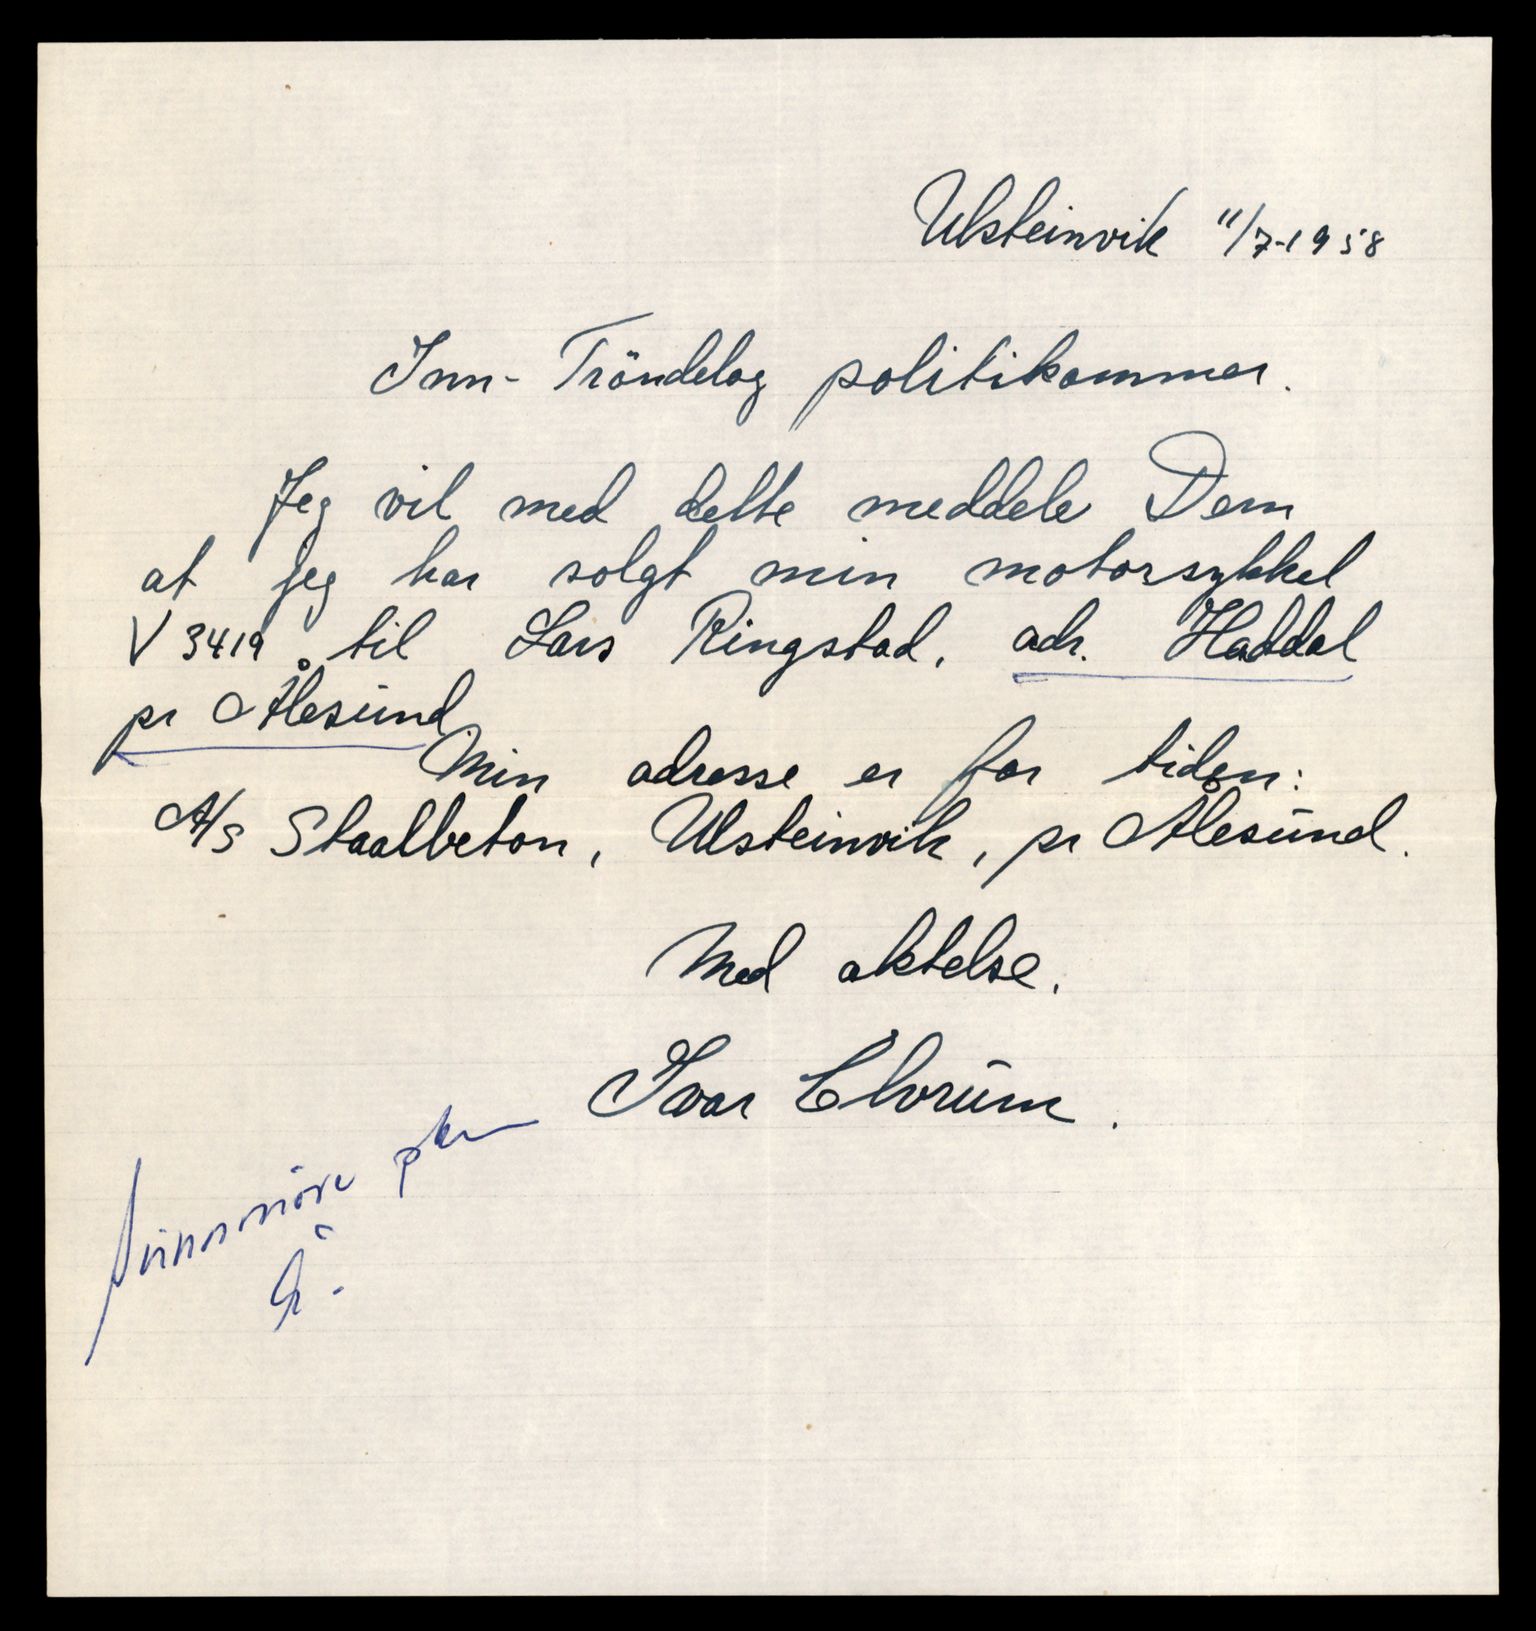 Ulsteinvik 11/7-1958
Inn-Tröndelag politikammer.
Jeg vil med dette meddele Dem
at jeg har solgt min motorsykkel
V 3419 til Lars Ringstad, adr. Haddal
pr Ålesund
Min adresse er for tiden:
A/S Staalbeton, Ulsteinvik, pr Ålesund.
Med aktelse.
Ivar Elvrum.
Sunnmöre pkm